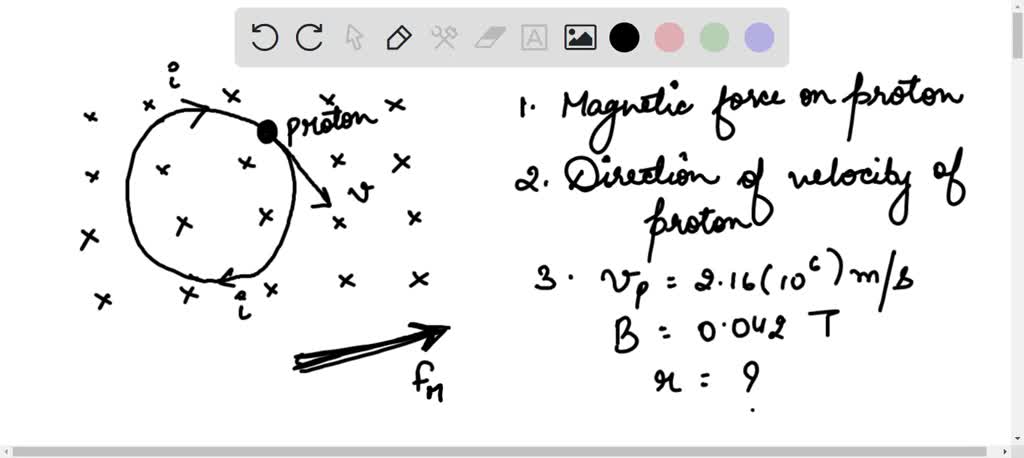 i
proton
v
i
F_M
1. Magnetic force on proton
2. Direction of velocity of
proton
3. v_p = 2.16(10^6) m/s
B = 0.042 T
r = ?
A